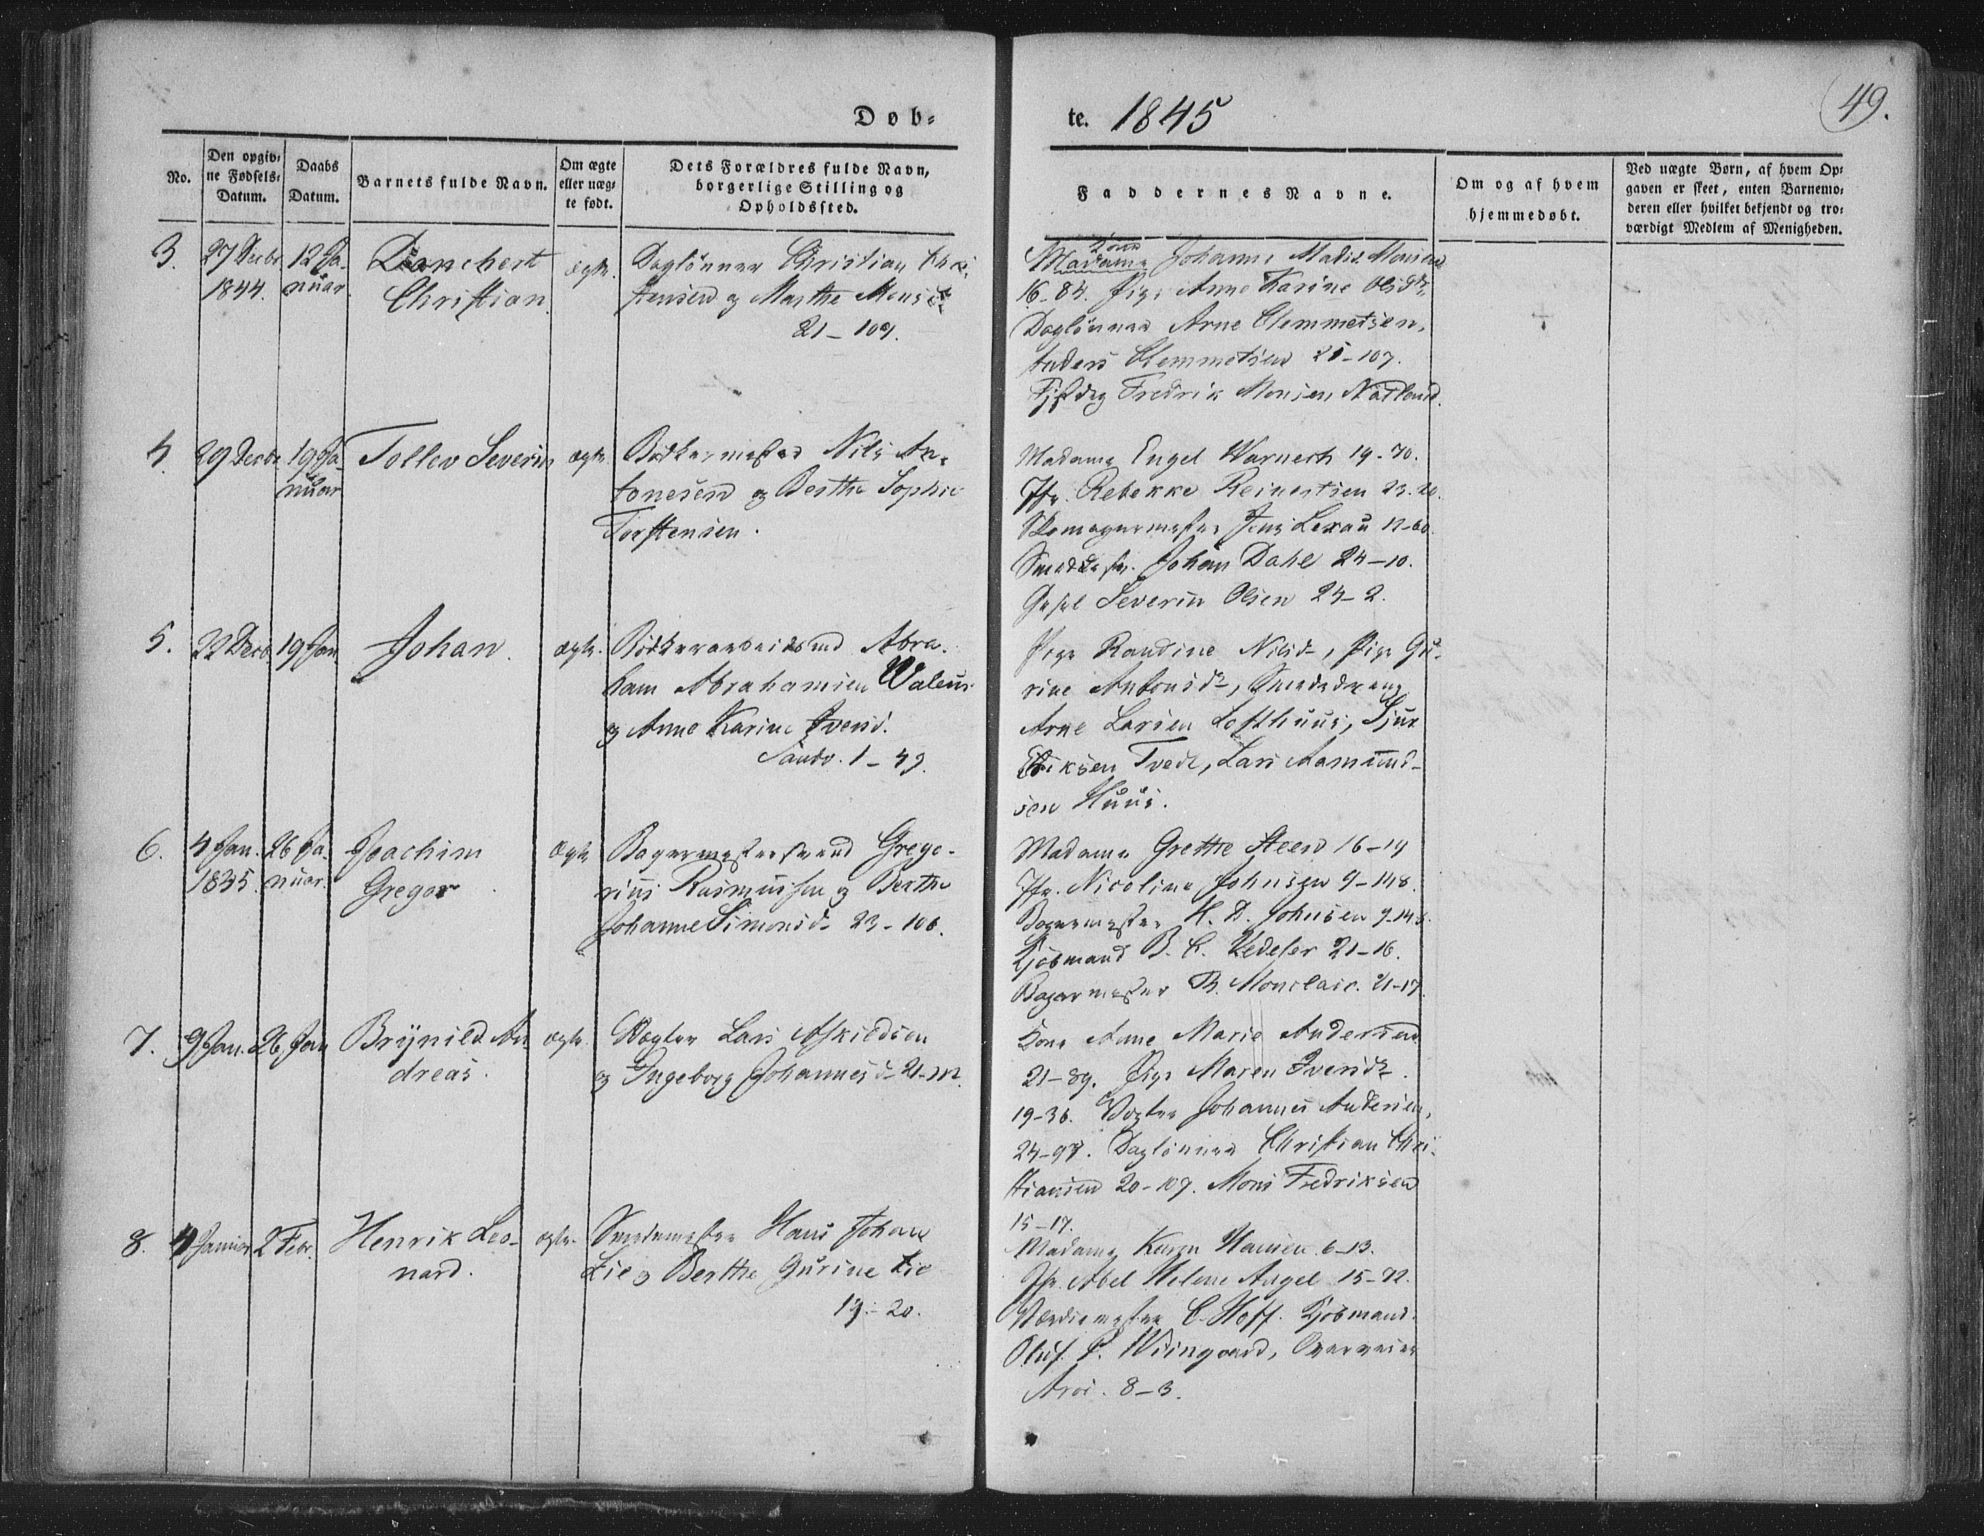 Døb-
No.
Den opgiv-
ne Fødsels-
Datum.
Daabs
Datum.
Barnets fulde Navn.
Om ægte
eller uæg-
te født.
Dets Forældres fulde Navn,
borgerlige Stilling og
Opholdssted.
3.
27 Decbr
1844.
12 Ja-
nuar
Danchert
Christian
ægte.
Daglönner Christian Chri-
stensen og Marthe Monsd.
21-109.
4.
29 Decbr
19 Ja-
nuar
Tollev Severin
ægte
Bödkermester Nils An-
tonesen og Berthe Sophie
Torstensen.
5.
22 Decb.
19 Jan.
Johan.
ægte.
Bödkerarbeidsmd Abra-
ham Abrahamsen Valeur
og Anne Karine Iversd.
Sandv. 1-49.
6.
4 Jan.
1845.
26 Ja-
nuar.
Joachim
Gregor
ægte
Bagermestersvend Grego-
rius Rasmussen og Berthe
Johanne Simonsd. 23-106.
7.
9 Jan.
26 Jan
Brÿnild An-
dreas.
ægte.
Vægter Lars Askildsen
og Ingeborg Johannesd.
8.
4 Januar
2 Febr.
Henrik Leo-
nard.
ægte.
Smedemester Hans Johan
Lie og Berthe Gurine Lie
19-20.
te. 1845
49.
Faddernes Navne.
Om og af hvem
hjemmedøbt.
Ved uægte Børn, af hvem Op-
gaven er skeet, enten Barnemo-
deren eller hvilket bekjendt og tro-
værdigt Medlem af Menigheden.
Kone
Madame Johanne
16-84. Pige Anne Karine Olsdtr.
Daglönner Arne Clemmetsen,
Anders Clemmetsen 21-107.
Fredrik Monsen Natland.
Madame Engel Warnech 19-70.
Jfr. Rebekke Reinertsen 23-20.
Skomagermester Jens Lexau 12-60.
Johan Dahl 24-10.
Severin Olsen 24-2.
Pige Randine Nilsd., Pige Gu-
rine Antonsdr, Smededreng
Arne Larsen Lofthuus, Sjur
Eriksen Tvedt, Lars Aamund-
sen Huus.
Madame Grethe Steen 16-19
Jfr. Nicoline Johnsen 9-148.
Bagermester H. D. Johnsen 9-148.
Kjöbmand B. C. 21-16.
Bagermester B. Monclair. 21-17.
Kone Anne Marie Andersen
21-89. Pige Maren Iversdr.
19-36. Vægter Johannes Andersen,
24-98. Daglönner Christian Chri-
stiansen 20-109. Mons Fredriksen
15-17.
Madame Karen Hansen 6-13.
Jfr. Abel Helene Angel 15-72.
C. Hoff. Kjöbmand
Oluf. P. Wiingaard,
8-3.